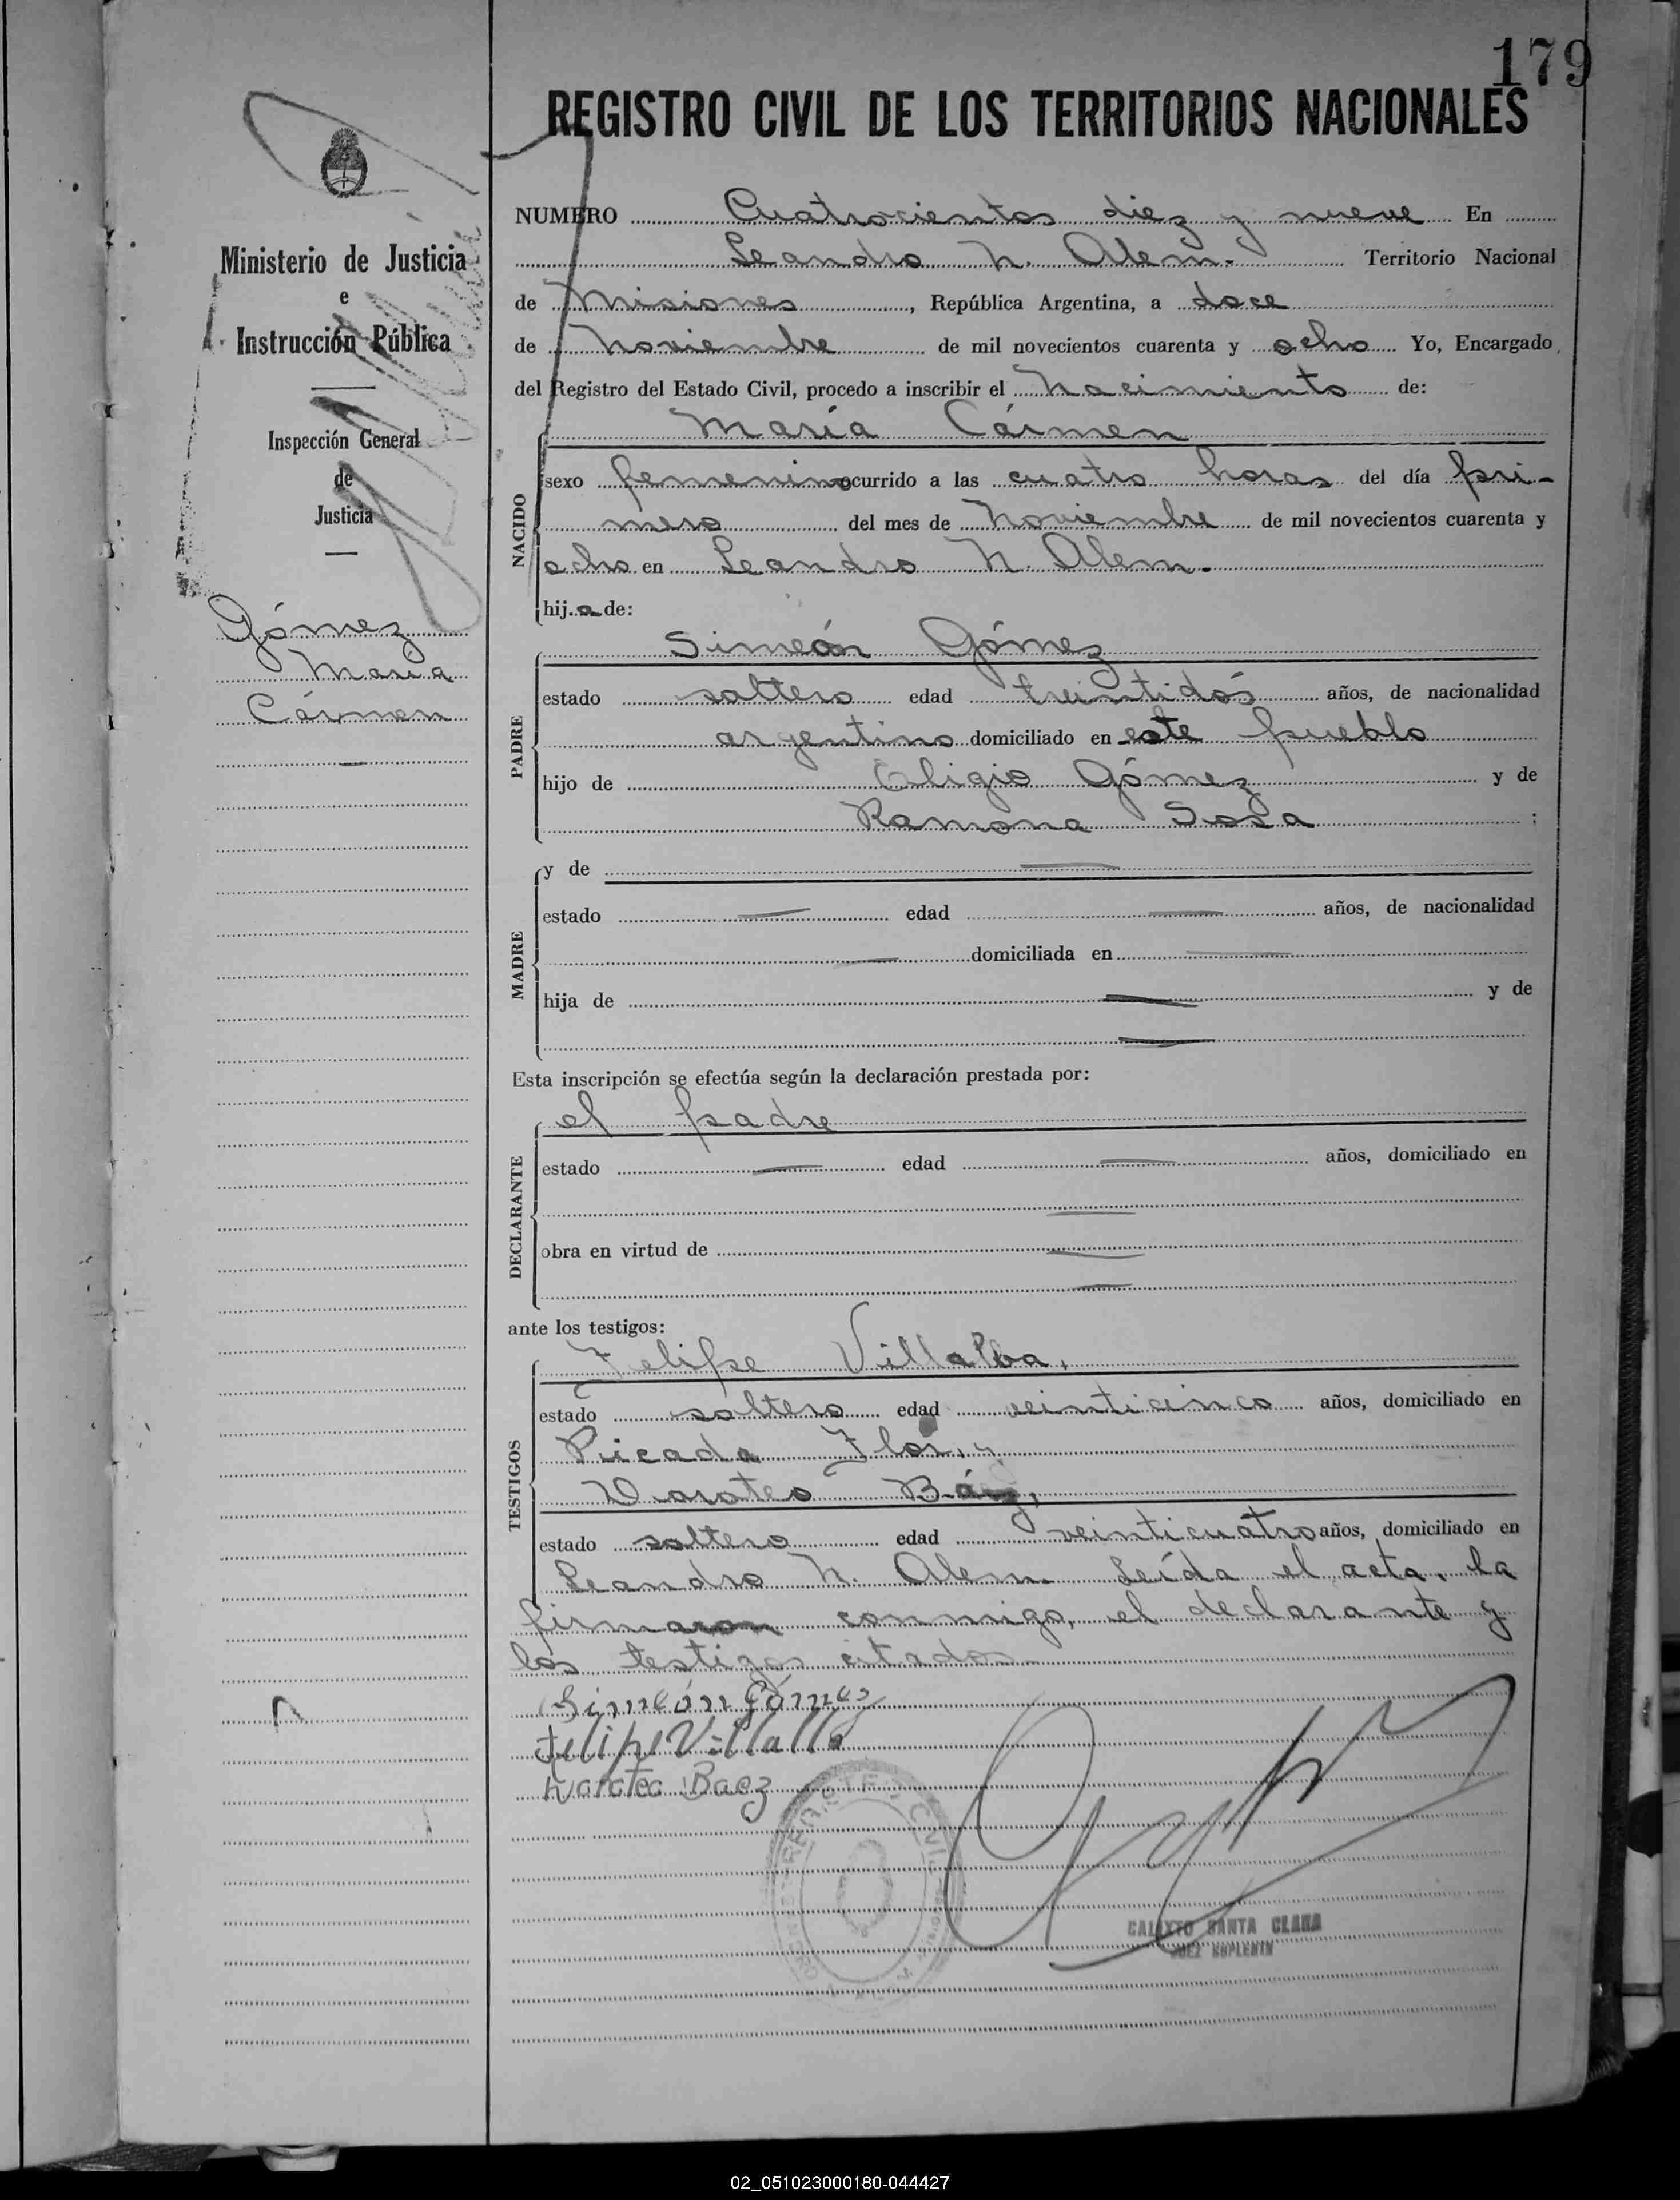 179
REGISTRO CIVIL DE LOS TERRITORIOS NACIONALES
Ministerio de Justicia
e
Instrucción Pública
Inspección General
de
Justicia
Gómez
María
Cármen
NUMERO Cuatrocientos diez y nueve En
Leandro N. Alem. Territorio Nacional
de Misiones, República Argentina, a doce
de Noviembre de mil novecientos cuarenta y ocho Yo, Encargado
del Registro del Estado Civil, procedo a inscribir el Nacimiento de:
María Cármen
NACIDO
sexo femenino ocurrido a las cuatro horas del día pri-
mero del mes de Noviembre de mil novecientos cuarenta y
ocho en Leandro N. Alem.
hija de:
Simeón Gómez
PADRE
estado soltero edad treintidós años, de nacionalidad
argentino domiciliado en este pueblo
hijo de Eligio Gómez y de
Ramona Sosa ;
MADRE
y de
estado edad años, de nacionalidad
domiciliada en
hija de y de
Esta inscripción se efectúa según la declaración prestada por:
el padre
DECLARANTE
estado edad años, domiciliado en
obra en virtud de
ante los testigos:
Felipe Villalba,
TESTIGOS
estado soltero edad veinticinco años, domiciliado en
Picada Flor, y
Doroteo Báez,
estado soltero edad veinticuatro años, domiciliado en
Leandro N. Alem. Leída el acta, la
firmaron conmigo, el declarante y
los testigos citados.
Simeón Gómez
Felipe Villalba
Doroteo Baez
REGISTRO CIVIL
CALIXTO SANTA CLARA
JUEZ SUPLENTE
02_051023000180-044427